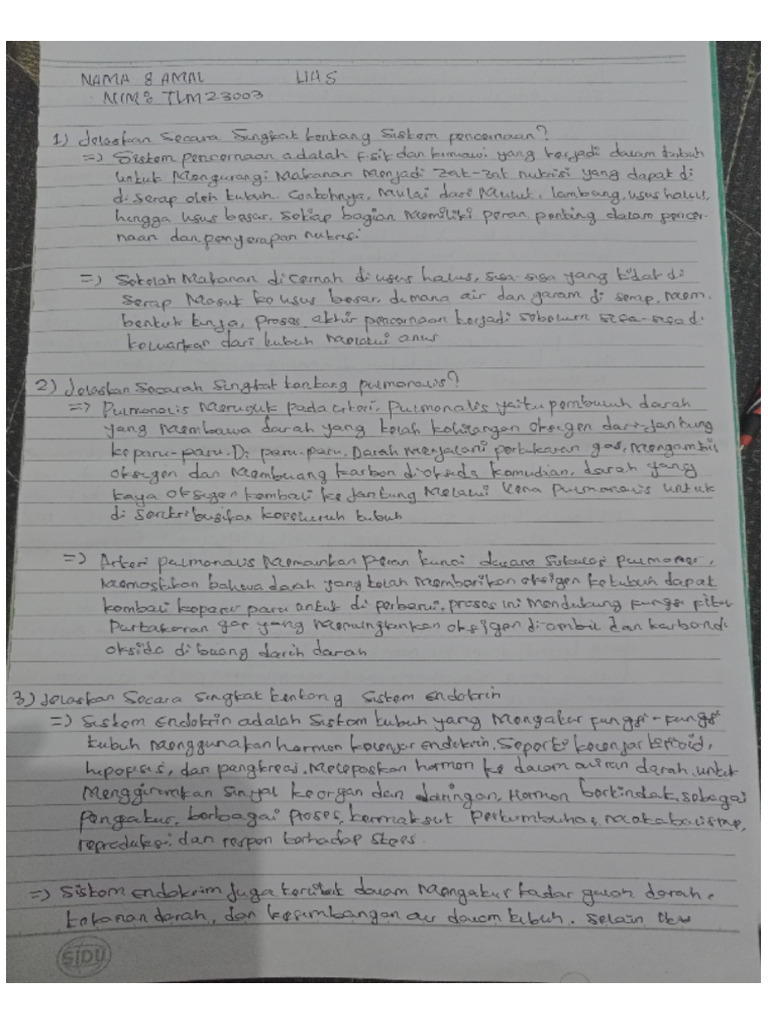 NAMA : AMAL UAS
NIM : TLM23003
1) Jelaskan Secara Singkat tentang Sistem pencernaan?
=> Sistem pencernaan adalah fisik dan kimiawi yang terjadi dalam tubuh
untuk Mengurangi Makanan Menjadi zat-zat nutrisi yang dapat di
di serap oleh tubuh. Contohnya, Mulai dari Mulut, lambang, usus halus,
hingga usus besar. Setiap bagian Memiliki peran penting dalam pencer-
naan dan penyerapan nutrisi
=> Setelah Makanan di cernah di usus halus, sisa-sisa yang tidak di
serap Masuk ke usus besar, dimana air dan garam di serap, Mem.
bentuk tinja, proses akhir pencernaan terjadi sebelum sisa-sisa di
keluarkan dari tubuh melalui anus
2) Jelaskan Secarah Singkat tentang pulmonalis?
=> Pulmonalis Merujuk pada arteri. Pulmonalis yaitu pembuluh darah
yang Membawa darah yang telah kehilangan oksigen dari jantung
ke paru-paru. Di paru-paru. Darah Menjalani pertukaran gas, Mengambil
oksigen dan Membuang karbon dioksida kemudian, darah yang
kaya oksigen kembali ke jantung Melalui Vena Pulmonalis untuk
di sentribusikan keseluruh tubuh
=> Arteri pulmonalis Memainkan Peran kunci dalam Sirkulasi Pulmoner,
Memastikan bahwa darah yang telah Memberikan oksigen ke tubuh dapat
kembali keparu paru untuk di perbarui, proses ini Mendukung fungsi
Pertukaran gas yang Memungkinkan oksigen diambil dan karbondi
oksida di buang darih darah
3) Jelaskan Secara Singkat tentang Sistem Endokrin
=> Sistem Endokrin adalah Sistem tubuh yang Mengatur fungsi-fungsi
tubuh Menggunakan hormon kelenjar endokrin. Seperti kelenjar tiroid,
hipofisis, dan pangkreas. Melepaskan hormon ke dalam aliran darah untuk
Menggirimkan sinyal ke organ dan Jaringan, Hormon bertindak sebagai
Pengatur, berbagai proses, termaksut Pertumbuhan, metabolisme,
reproduksi dan respon terhadap stres.
=> Sistem endokrim Juga terlibat dalam Mengatur kadar gulah darah,
tekanan darah, dan keseimbangan air dalam tubuh. Selain itu
SIDU